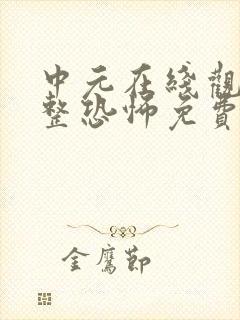 中元在綫觀
整恐怖免費
金鷹節